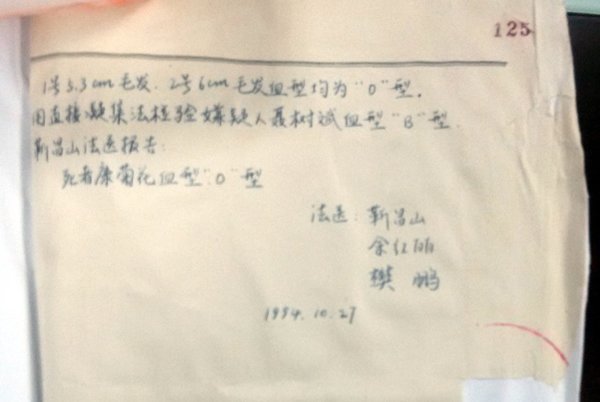 125
1号5.3cm毛发、2号6cm毛发血型均为"O"型。
用直接凝集法检验嫌疑人聂树斌血型"B"型.
靳昌山法医报告:
死者康菊花血型"O"型
法医: 靳昌山
余红
樊鹏
1994.10.27